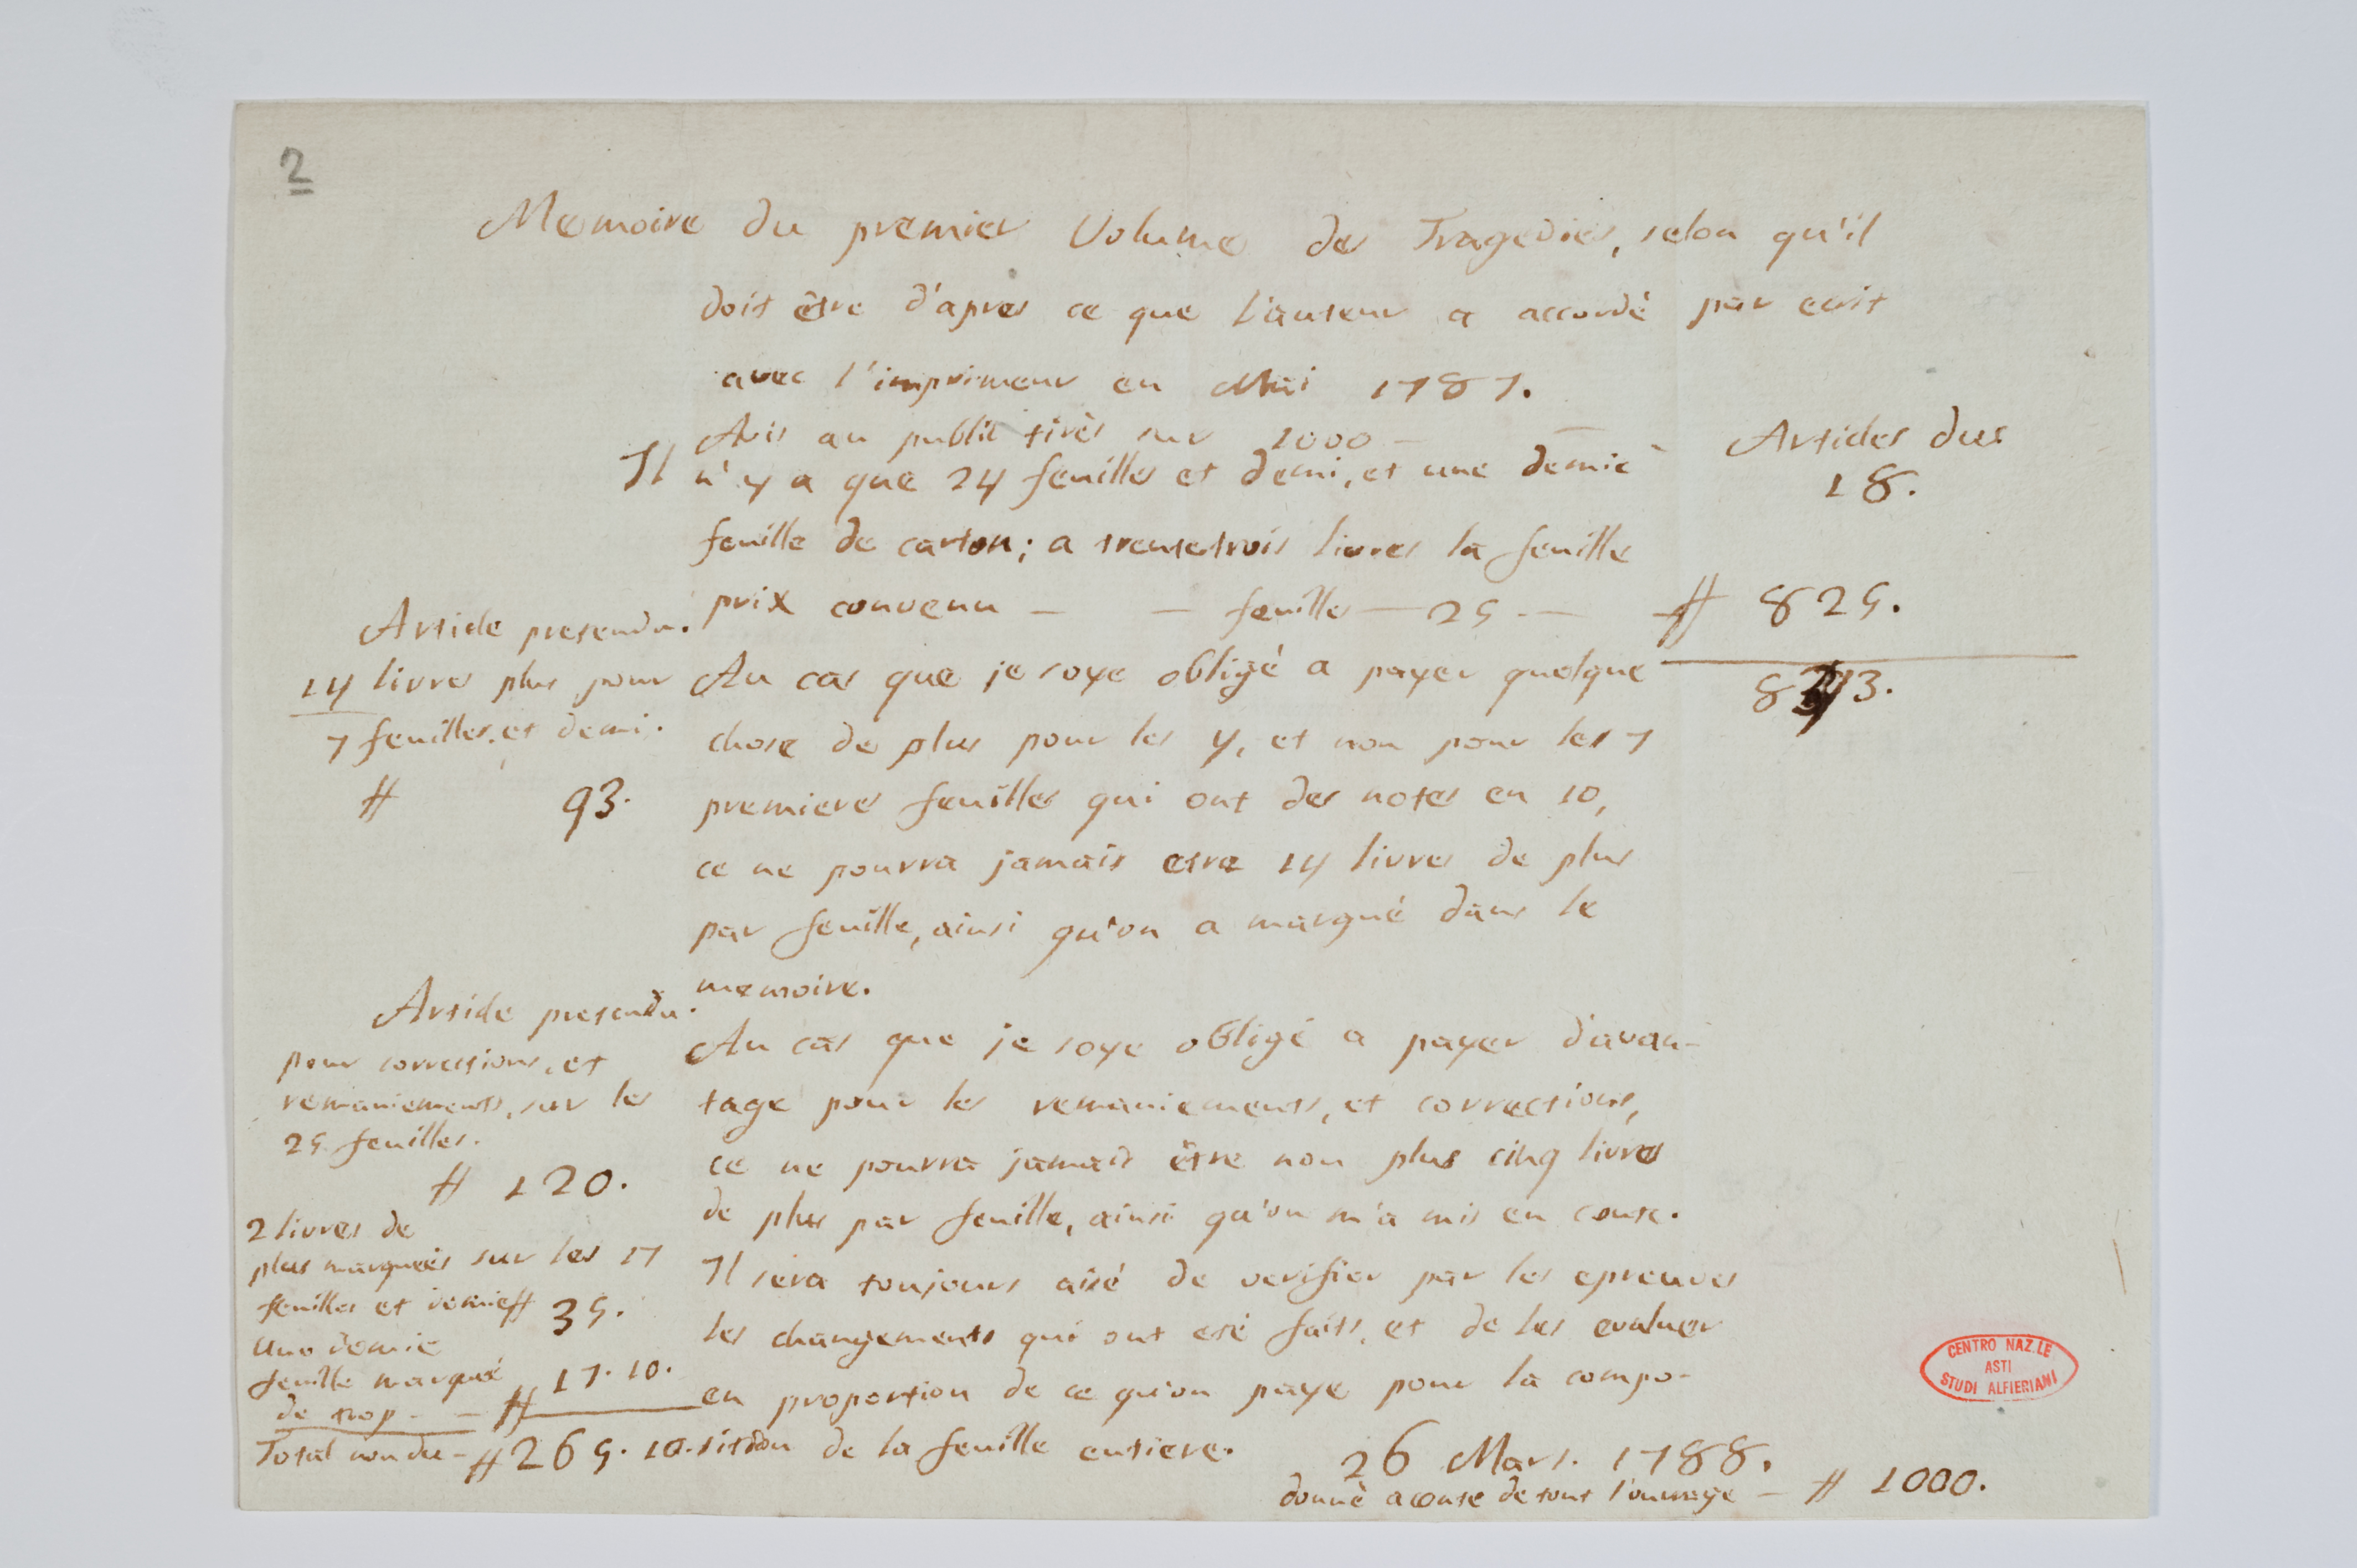 2
Memoire du premier Volume des Tragedies, selon qu'il
doit être d'apres ce que l'auteur a accordé par ecrit
avec l'imprimeur en Mai 1787.
Avis au public tirès sur 1000 — —
Articles dus
18.
Il n'y a que 24 feuilles et demi, et une demie
feuille de carton; a trentetrois livres la feuille
prix convenu — — feuilles — 25 — — # 825.
843.
Article pretendu.
14 livres plus pour
7 feuilles, et demi.
# 93.
Au cas que je soye obligé a payer quelque
chose de plus pour les 4, et non pour les 7
premieres feuilles qui ont des notes en 10,
ce ne pourra jamais etre 14 livres de plus
par feuille, ainsi qu'on a marqué dans le
memoire.
Article pretendu.
pour corrections, et
remaniements, sur les
25 feuilles.
# 120.
2 livres de
plus marqueés sur les 17
feuilles et demie # 35.
une demie
feuille marqué
de trop — — # 17.10.
Total non du — # 265.10.
Au cas que je soye obligé a payer d'avan-
tage pour les remaniements, et corrections,
ce ne pourra jamais être non plus cinq livres
de plus par feuille, ainsi qu'on m'a mis en conte.
Il sera toujours aisé de verifier par les epreuves
les changements qui ont eté faits, et de les evaluer
en proportion de ce qu'on paye pour la compo-
sition de la feuille entiere.
26 Mars. 1788.
donné a conte de tout l'ouvrage — # 1000.
CENTRO NAZ.LE
ASTI
STUDI ALFIERIANI